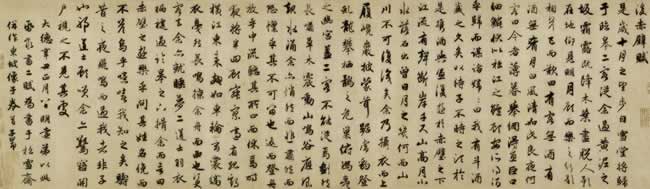 後赤壁賦
是歲十月之望步自雪堂將歸
于臨皋二客從余過黃泥之
坂霜露既降木葉盡脫人影
在地仰見明月顧而樂之行歌
相答已而歎曰有客無酒有
酒無肴月白風清如此良夜何
客曰今者薄暮舉網得魚巨口
細鱗狀似松江之鱸顧安所得酒
乎歸而謀諸婦婦曰我有斗酒
藏之久矣以待子不時之須於
是攜酒與魚復遊於赤壁之下
江流有聲斷岸千尺山高月小
水落石出曾日月之幾何而江山
不可復識矣余乃攝衣而上
履巉巖披蒙茸踞虎豹登
虬龍攀栖鶻之危巢俯馮夷
之幽宮蓋二客不能從焉劃然
長嘯草木震動山鳴谷應風
起水涌余亦悄然而悲肅然而
恐凜乎其不可留也反而登舟
放乎中流聽其所止而休焉時
夜將半四顧寂寥適有孤鶴
橫江東來翅如車輪玄裳縞
衣戛然長鳴掠余舟而西也須
臾客去余亦就睡夢二道士羽衣
蹁躚過臨皋之下揖余而言曰
赤壁之遊樂乎問其姓名俛而
不答嗚呼噫嘻我知之矣疇
昔之夜飛鳴而過我者非子
也耶道士顧笑余亦驚寤開
戶視之不見其處
大德辛丑正月八日明遠弟以此
紙求書二賦為書于松雪齋
併作東坡像于卷首子昂